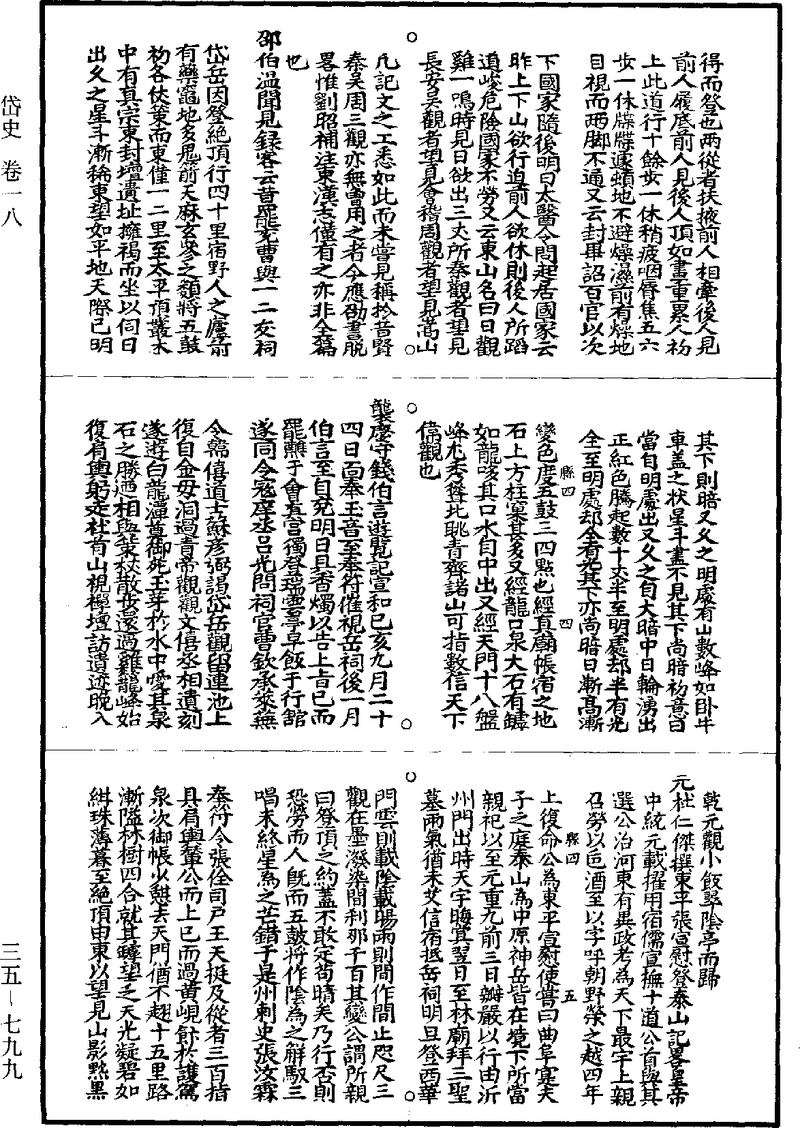 岱史 卷一八
三五—七九九
得而登也两從者扶掖前人相牽後人見
前人履底前人見後人頂如畫重累人矜
上此道行十餘步一休稍疲咽脣焦五六
步一休牒牒遽頓地不避燥濕前有燥地
目視而两脚不通又云封畢詔百官以次
下國家隨後明日太醫令問起居國家云
昨上下山欲行迫前人欲休則後人所蹈
道峻危險國家不勞又云東山名曰日觀
雞一鳴時見日欲出三丈所秦觀者望見
長安吴觀者望見會稽周觀者望見嵩山
凡記文之工悉如此而未嘗見稱於昔賢
秦吴周三觀亦無曾用之者今應劭書脫
畧惟劉昭補注東漢志僅有之亦非全篇
也
邵伯温聞見録客云昔罷兖曹與一二友祠
岱岳因登絶頂行四十里宿野人之廬前
有藥竈地多鬼箭天麻玄參之類將五鼓
初各仗策而東僅一二里至太平頂叢木
中有真宗東封壇遺址擁褐而坐以伺日
出久之星斗漸稀東望如平地天際已明
其下則暗又久之明處有山數峰如卧牛
車盖之狀星斗盡不見其下尚暗初意日
當自明處出又久之自大暗中日輪湧出
正紅色騰起數十丈半至明處却半有光
全至明處却全有光其下亦尚暗日漸高漸
變色度五鼓三四點也經真廟帳宿之地
縣四
四
石上方柱窠甚多又經龍口泉大石有罅
如龍哆其口水自中出又經天門十八盤
峰尤秀聳北眺青齊諸山可指數信天下
偉觀也
襲慶守錢伯言遊覽記宣和己亥九月二十
四日面奉玉音至奉符催視岳祠後一月
伯言至自兖明日具香燭以告上旨已而
罷醮于會真宫獨登瑞雲亭卓飯于行舘
遂同令寇庠丞吕光問祠官曹欽承來蕪
令韓僖道士蘇彦弼謁岱岳觀留連池上
復自金母洞過青帝觀觀文僖丞相遺刻
遂遊白龍潭尊御死玉芽於水中愛其泉
石之勝迺相與策杖散步還過雞龍峰始
復肩輿躬走社首山視禪壇訪遺迹晚入
乾元觀小飯翠陰亭而歸
元杜仁傑撰東平張宣慰登泰山記畧皇帝
中統元載擢用宿儒宣撫十道公首與其
選公治河東有異政考為天下最宇上親
召勞以巵酒至以字呼朝野榮之越四年
上復命公為東平宣慰使嘗曰曲阜寔夫
縣四
五
子之庭泰山為中原神岳皆在境下所當
親祀以至元重九前三日辦嚴以行由沂
州門出時天宇晦冥翌日至林廟拜三聖
墓雨氣猶未艾信宿抵岳祠明旦登西華
門雲則載陰載暘雨則間作間止咫尺三
觀在墨潑染間利那千百其變公謂所親
曰登頂之約蓋不敢定苟晴矣乃行否則
恐勞而人既而五鼓將作陰為之解馭三
唱未終星為之芒錯于是州刺史張汝霖
奉符令張佺司戸王天挺及從者三百指
具肩輿輦公而上已而過黄峴飲於護駕
泉次御帳少憩去天門猶不翅十五里路
漸隘林樹四合就其罅望之天光凝碧如
紺珠薄暮至絶頂由東以望見山影黙黑